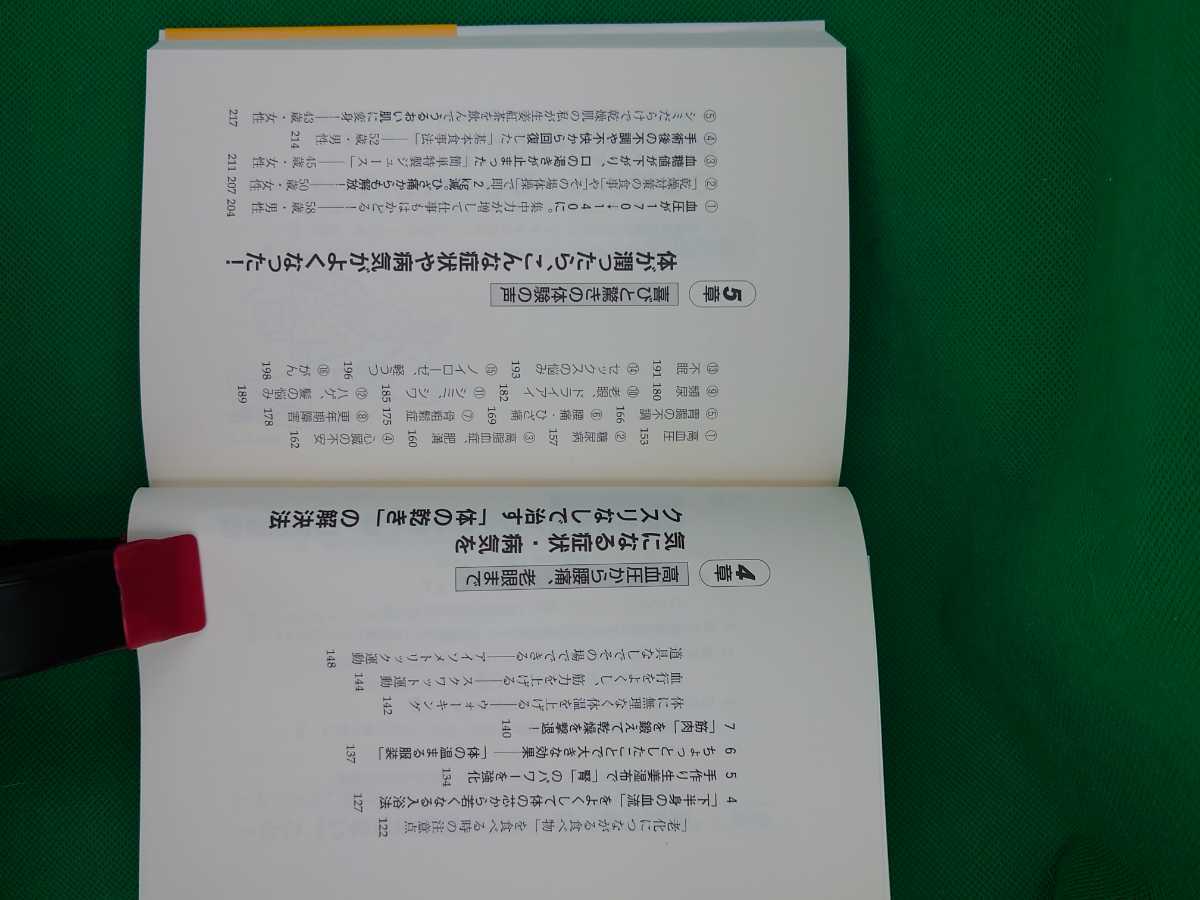 「老化につながる食べ物」を食べる時の注意点 122
4 「下半身の血流」をよくして体の芯から若くなる入浴法 127
5 手作り生姜湿布で「腎」のパワーを強化 134
6 ちょっとしたことで大きな効果――「体の温まる服装」 137
7 「筋肉」を鍛えて乾燥を撃退！ 140
体に無理なく体温を上げる――ウォーキング 142
血行をよくし、筋力を上げる――スクワット運動 144
道具なしでその場でできる――アイソメトリック運動 148
4章 高血圧から腰痛、老眼まで
気になる症状・病気を
クスリなしで治す「体の乾き」の解決法
①高血圧 153 ②糖尿病 157 ③高脂血症、肥満 160 ④心臓の不安 162
⑤胃腸の不調 166 ⑥腰痛・ひざ痛 169 ⑦骨粗鬆症 175 ⑧更年期障害 178
⑨頻尿 180 ⑩老眼、ドライアイ 182 ⑪シミ、シワ 185 ⑫ハゲ、髪の悩み 189
⑬不眠 191 ⑭セックスの悩み 193 ⑮ノイローゼ、軽うつ 196 ⑯がん 198
5章 喜びと驚きの体験の声
体が潤ったら、こんな症状や病気がよくなった！
①血圧が170→140に。集中力が増して仕事もはかどる！――58歳・男性 204
②「乾燥対策の食事」や「その場体操」で即、2kg減。ひざ痛からも解放――50歳・女性 207
③血糖値が下がり、口の渇きが止まった「簡単特製ジュース」――45歳・女性 211
④手術後の不調や不快から回復した「基本食事法」――52歳・男性 214
⑤シミだらけで乾燥肌の私が生姜紅茶を飲んでうるおい肌に変身！――43歳・女性 217